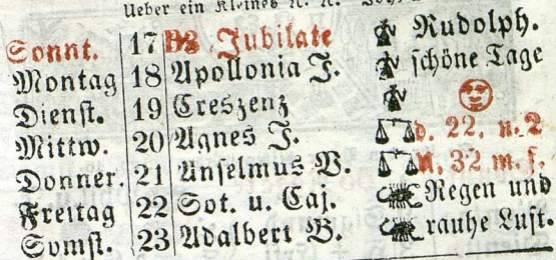 Ueber ein Kleines
Sonnt. 17 B3 Jubilate Rudolph.
Montag 18 Apollonia J. schöne Tage
Dienst. 19 Creszenz
Mittw. 20 Agnes J. d. 22. n. 2.
Donner. 21 Anselmus B. U. 32 m. f.
Freitag 22 Sot. u. Caj. Regen und
Samst. 23 Adalbert B. rauhe Luft.